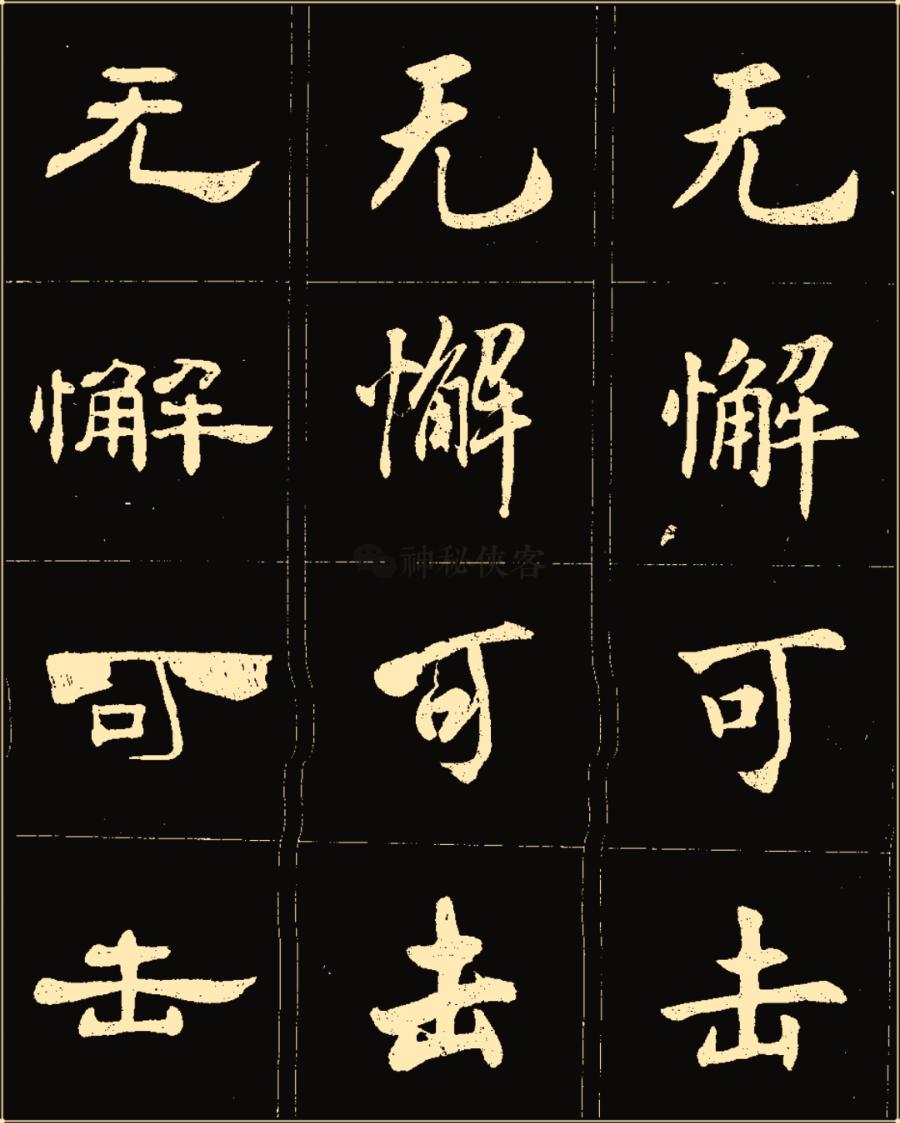 无 无 无
懈 懈 懈
可 可 可
击 击 击
神秘侠客